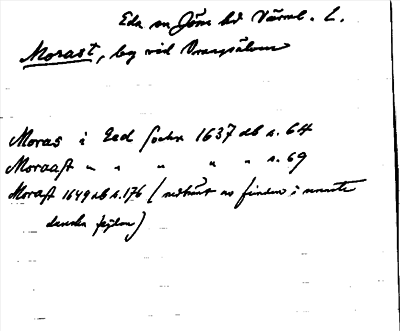 Eda sn Jösse hd Värml. l.
Morast, by vid Vrangsälven
Moras i Eed sochn 1637 db s. 64
Moraast " " " " " s. 69
Morast 1649 db s. 176 ( av finden i senaste
danska )